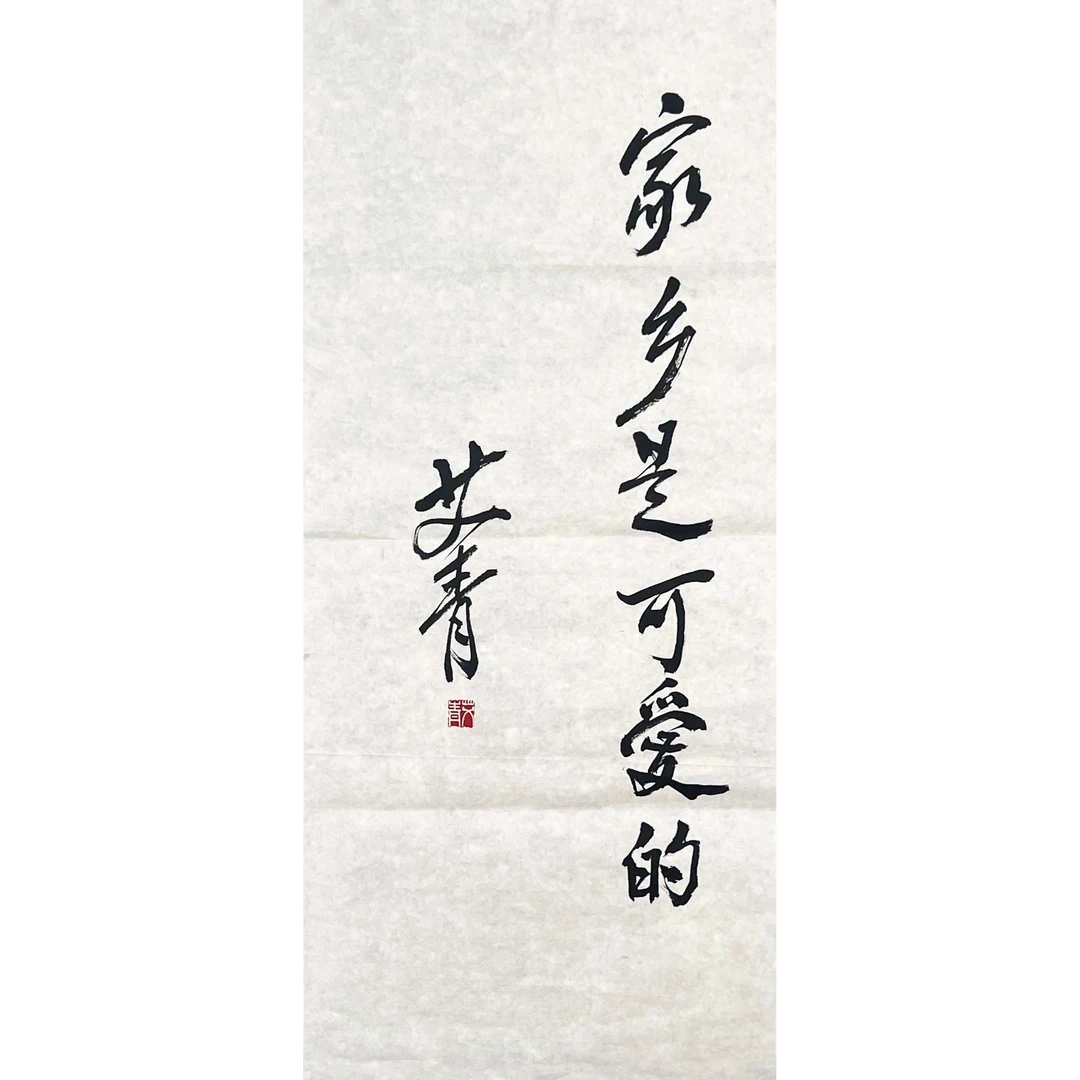 家乡是可愛的
艾青
艾青